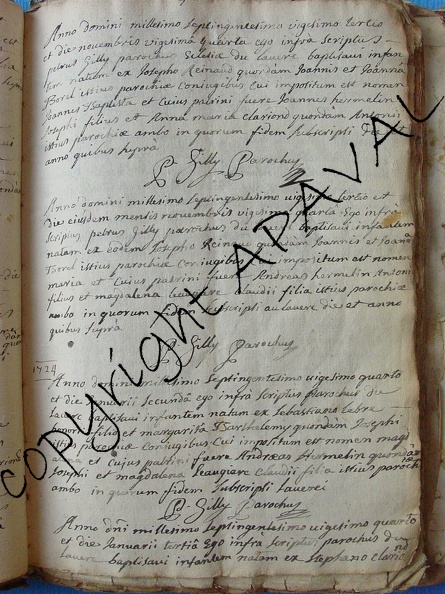 Anno domini millesimo septingentesimo vigesimo tertio
et die novembris vigesima quarta ego infra scriptus
petrus Gilly parochus Ecclesiæ du lavere baptisavi infan
tem natum ex Josepho Reinaud quondam Joannis et Joanna
Borel istius parochiæ Conjugibus Cui impositum est nomen
Joannes Baptista et Cujus patrini fuere Joannes hermelin
Josephi filius et Anna maria clariond quondam Antonii
istius parochiæ ambo in quorum fidem subscripsi die et
anno quibus supra
P. Gilly Parochus
Anno domini millesimo septingentesimo vigesimo tertio et
die ejusdem mensis novembris vigesima quarta Ego infra
scriptus petrus Gilly parochus du baptisavi infantem
natam ex eodem Josepho Reinaud quondam Joannis et Joanna
Borel istius parochiæ Conjugibus impositum est nomen
maria et Cujus patrini fuere Andreas hermelin Antonii
filius et magdalena claudii filia istius parochiæ
ambo in quorum fidem subscripsi au lavere die et anno
quibus supra
P. Gilly Parochus
1724
Anno domini millesimo septingentesimo vigesimo quarto
et die januarii secunda ego infra scriptus parochus du
lavere baptisavi infantem natam ex sebastiano
filio et margarita Barthelemy quondam Josephi
istius parochiæ Conjugibus Cui impositum est nomen mag
et Cujus patrini fuere Andreas Hermelin quondam
Josephi et magdalena Claudii filia istius paroch
ambo in quorum fidem subscripsi laverci
P. Gilly Parochus
Anno dñi millesimo septingentesimo vigesimo quarto
et die Januarii tertia Ego infra scriptus parochus du
lavere baptisavi infantem natam ex stephano
Copyright APAVAL